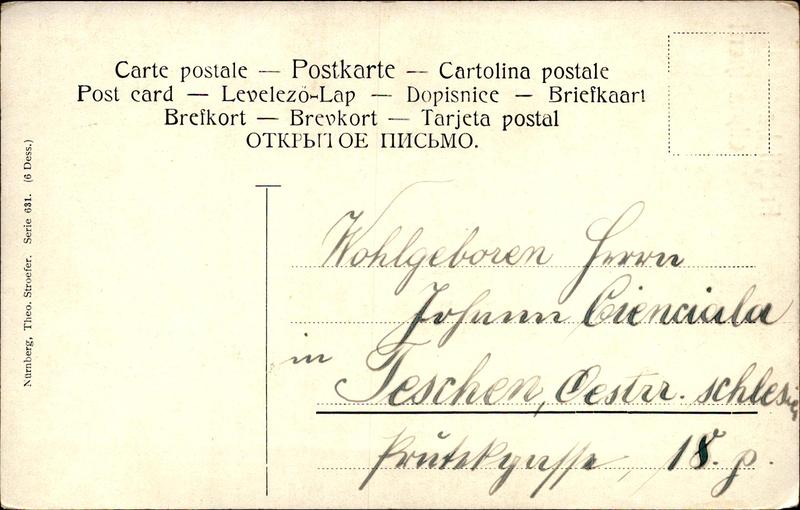 Carte postale — Postkarte — Cartolina postale
Post card — Levelezö-Lap — Dopisnice — Briefkaart
Brefkort — Brevkort — Tarjeta postal
ОТКРЫТОЕ ПИСЬМО.
Nürnberg, Theo. Stroefer. Serie 631. (6 Dess.)
Wohlgeboren Herrn
Johann Cienciala
in
Teschen, Oestrr. schlesig
Prutekgasse, 18. p.